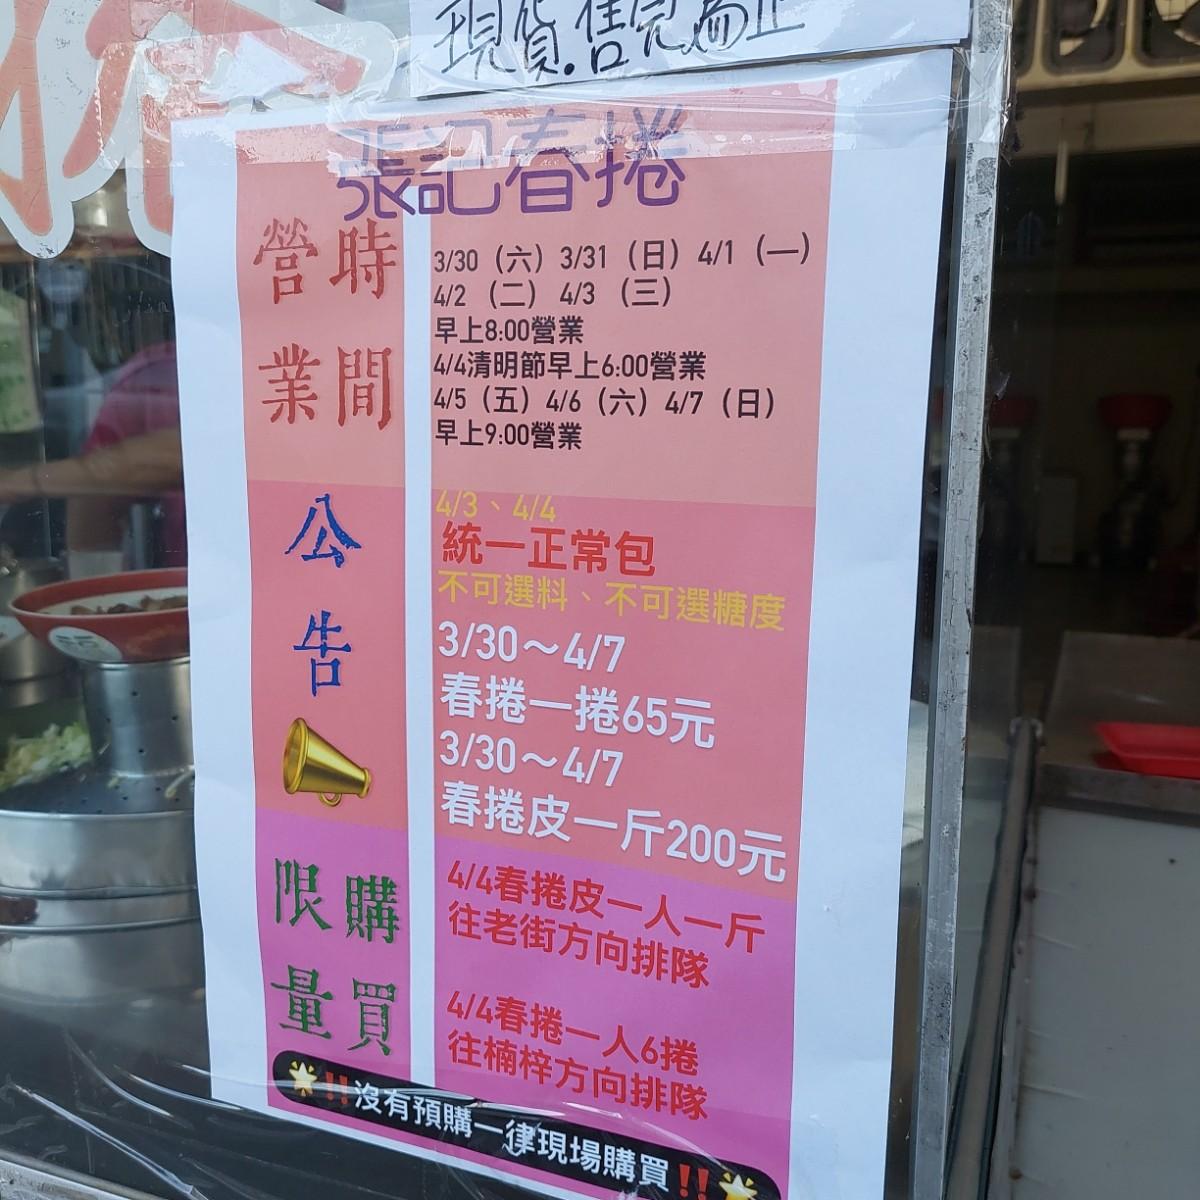 現貨.售完為止
張記春捲
營業時間
3/30（六）3/31（日）4/1（一）
4/2（二） 4/3（三）
早上8:00營業
4/4清明節早上6:00營業
4/5（五）4/6（六）4/7（日）
早上9:00營業
公告
4/3、4/4
統一正常包
不可選料、不可選糖度
3/30～4/7
春捲一捲65元
3/30～4/7
春捲皮一斤200元
限量購買
4/4春捲皮一人一斤
往老街方向排隊
4/4春捲一人6捲
往楠梓方向排隊
‼沒有預購一律現場購買‼